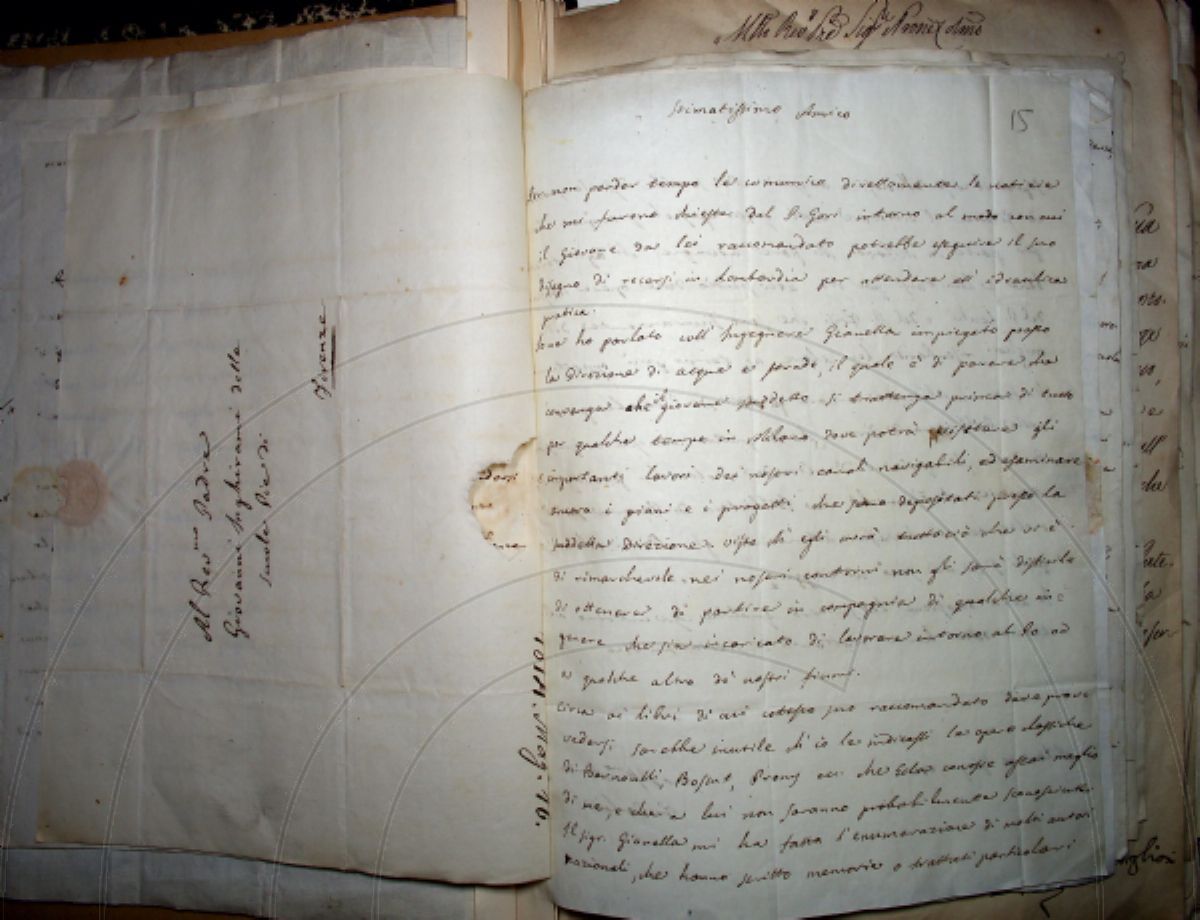 Al Rev.mo Padre
Giovanni Inghirami delle
Scuole Pie di
Firenze
1818. Mag. 16.
Stimatissimo Amico
15
Per non perder tempo le comunico direttamente le notizie
che mi furono chieste dal P. Gori intorno al modo con cui
il Giovane da lei raccomandato potrebbe eseguire il suo
disegno di recarsi in Lombardia per attendere all' idraulica
pratica.
ho parlato coll' Ingegnere Gianella impiegato presso
la Direzione di acque e strade, il quale è di parere che
convenga che il giovane suddetto si trattenga prima di tutto
per qualche tempo in Milano, dove potrà visitare gli
importanti lavori dei nostri canali navigabili, ed esaminare
ancora i piani e i progetti che sono depositati presso la
suddetta Direzione. Visto ch' egli avrà tutto ciò che vi è
di rimarchevole nei nostri contorni non gli sarà difficile
di ottenere di partire in compagnia di qualche in-
gegnere che sia incaricato di lavorare intorno al Po od
a qualche altro de' nostri fiumi.
Circa ai libri di cui cotesto suo raccomandato deve prov-
vedersi sarebbe inutile ch' io le indicassi le opere classiche
di Bernoulli, Bossut, Prony ecc. che Ella conosce assai meglio
di me, e che a lui non saranno probabilmente sconosciute.
Il Sigr. Gianella mi ha fatta l'enumerazione di molti autori
nazionali, che hanno scritto memorie o trattati particolari